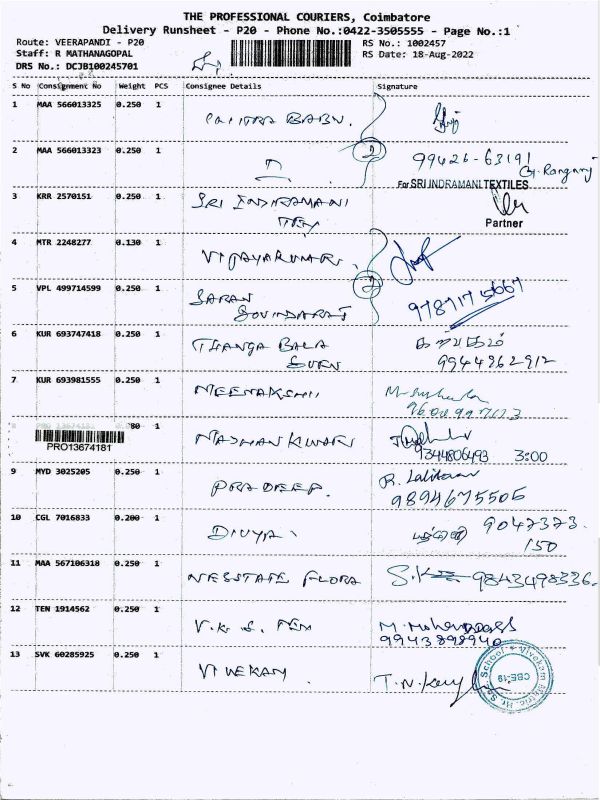 THE PROFESSIONAL COURIERS, Coimbatore
Delivery Runsheet - P20 - Phone No.:0422-3505555 - Page No.:1
Route: VEERAPANDI - P20
RS No.: 1002457
Staff: R MATHANAGOPAL
RS Date: 18-Aug-2022
DRS No.: DCJB100245701
S No Consignment No Weight PCS Consignee Details Signature
1 MAA 566013325 0.250 1 BABU.
2 MAA 566013323 0.250 1 2 99426-63191
For SRI INDRAMANI TEXTILES
3 KRR 2570151 0.250 1 SRI INDIRAMANI
TEX
Partner
4 MTR 2248277 0.130 1 VIJAYAKUMAR.
5 VPL 499714599 0.250 1 SARAN 2
GOVINDARAJ
6 KUR 693747418 0.250 1 THANGA BALA
9944962912
7 KUR 693981555 0.250 1 MEENAKSHI
PRO13674181 1
9344806493 3:00
9 MYD 3025205 0.250 1 PRADEEP. R. Lalitha
9894675506
10 CGL 7016833 0.200 1 DIVYA 9047373
150
11 MAA 567106318 0.250 1 FLORA 9843498336.
12 TEN 1914562 0.250 1 V.K.S. TEX
9943898940
13 SVK 60285925 0.250 1 VIVEKAM T.N.
CBE-19